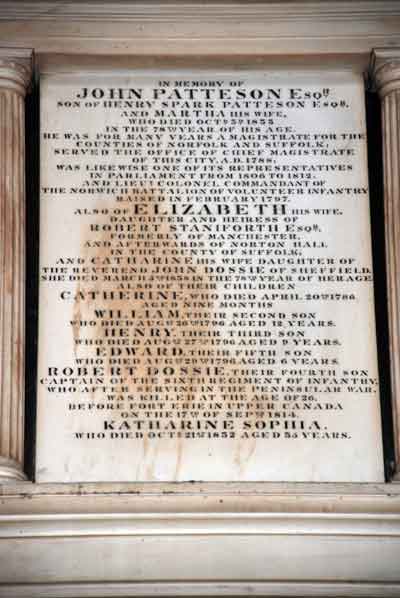 IN MEMORY OF
JOHN PATTESON ESQR.
SON OF HENRY SPARK PATTESON ESQR.
AND MARTHA HIS WIFE,
WHO DIED OCTR 3RD 1833
IN THE 78TH YEAR OF HIS AGE.
HE WAS FOR MANY YEARS A MAGISTRATE FOR THE
COUNTIES OF NORFOLK AND SUFFOLK;
SERVED THE OFFICE OF CHIEF MAGISTRATE
OF THIS CITY, A.D. 1788;
WAS LIKEWISE ONE OF ITS REPRESENTATIVES
IN PARLIAMENT FROM 1806 TO 1812,
AND LIEUT COLONEL COMMANDANT OF
THE NORWICH BATTALION OF VOLUNTEER INFANTRY
RAISED IN FEBRUARY 1797.
ALSO OF ELIZABETH HIS WIFE,
DAUGHTER AND HEIRESS OF
ROBERT STANIFORTH ESQR.
FORMERLY OF MANCHESTER,
AND AFTERWARDS OF NORTON HALL
IN THE COUNTY OF SUFFOLK,
AND CATHARINE HIS WIFE DAUGHTER OF
THE REVEREND JOHN DOSSIE OF SHEFFIELD.
SHE DIED MARCH 1838 IN THE 78TH YEAR OF HER AGE.
ALSO OF THEIR CHILDREN
CATHERINE, WHO DIED APRIL 20TH 1786
AGED NINE MONTHS
WILLIAM, THEIR SECOND SON
WHO DIED AUGST 26TH 1796 AGED 12 YEARS.
HENRY, THEIR THIRD SON
WHO DIED AUGST 27TH 1796 AGED 9 YEARS.
EDWARD, THEIR FIFTH SON
WHO DIED AUGST 29TH 1796 AGED 6 YEARS.
ROBERT DOSSIE, THEIR FOURTH SON
CAPTAIN OF THE SIXTH REGIMENT OF INFANTRY,
WHO AFTER SERVING IN THE PENINSULAR WAR,
WAS KILLED AT THE AGE OF 26,
BEFORE FORT ERIE IN UPPER CANADA
ON THE 17TH OF SEPTR 1814.
KATHARINE SOPHIA.
WHO DIED OCTR 21ST 1832 AGED 35 YEARS.